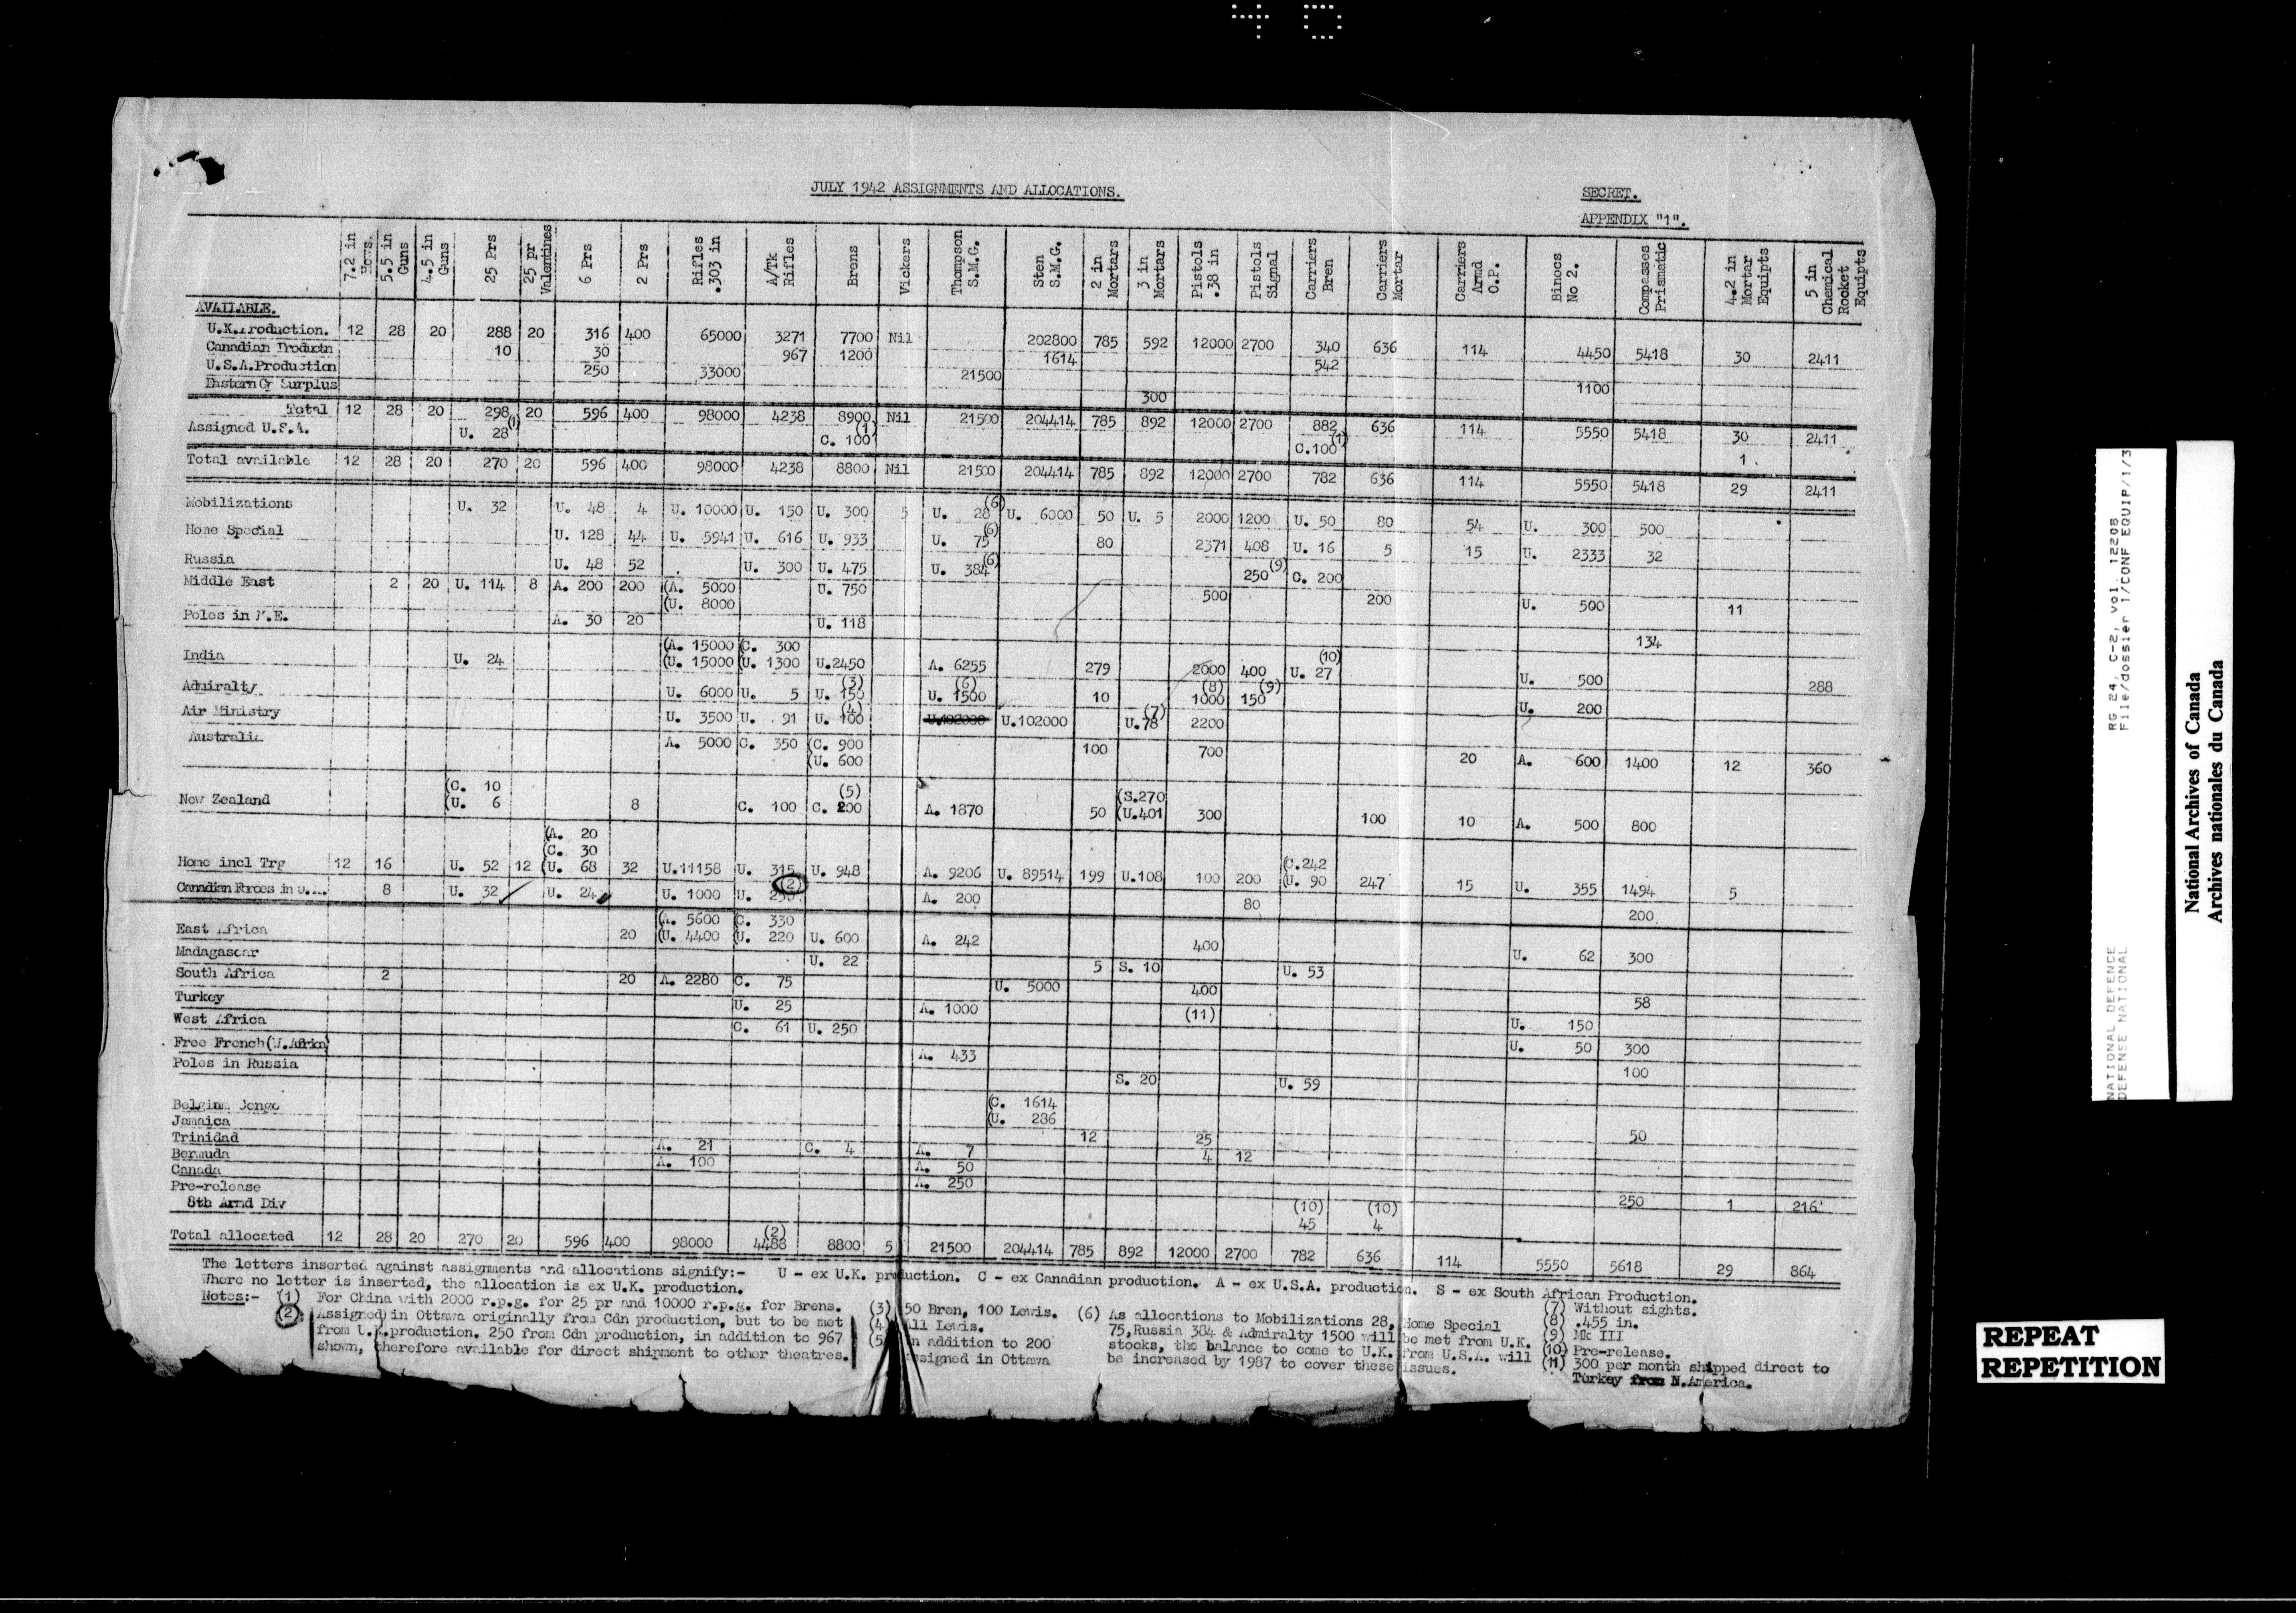 JULY 1942 ASSIGNMENTS AND ALLOCATIONS.
SECRET.
APPENDIX "1".
7.2 in Hows. 5.5 in Guns 4.5 in Guns 25 Prs 25 pr Valentines 6 Prs 2 Prs Rifles .303 in A/Tk Rifles Brens Vickers Thompson S.M.G. Sten S.M.G. 2 in Mortars 3 in Mortars Pistols .38 in Pistols Signal Carriers Bren Carriers Mortar Carriers Armd O.P. Binocs No 2. Compasses Prismatic 4.2 in Mortar Equipts 5 in Chemical Rocket Equipts
AVAILABLE.
U.K.Production. 12 28 20 288 20 316 400 65000 3271 7700 Nil 202800 785 592 12000 2700 340 636 114 4450 5418 30 2411
Canadian Productn 10 30 967 1200 1614 542
U.S.A.Production 250 33000 21500 1100
Eastern Gp Surplus 300
Total 12 28 20 298 20 596 400 98000 4238 8900 Nil 21500 204414 785 892 12000 2700 882 636 114 5550 5418 30 2411
Assigned U.S.A. U. 28 (1) C. 100 (1) C.100 (1) 1
Total available 12 28 20 270 20 596 400 98000 4238 8800 Nil 21500 204414 785 892 12000 2700 782 636 114 5550 5418 29 2411
Mobilizations U. 32 U. 48 4 U. 10000 U. 150 U. 300 5 U. 28 (6) U. 6000 50 U. 5 2000 1200 U. 50 80 54 U. 300 500
Home Special U. 128 44 U. 5941 U. 616 U. 933 U. 75 (6) 80 2371 408 U. 16 5 15 U. 2333 32
Russia U. 48 52 U. 300 U. 475 U. 384 (6) 250 (9) C. 200
Middle East 2 20 U. 114 8 A. 200 200 (A. 5000 U. 750 500 200 U. 500 11
(U. 8000
Poles in M.E. A. 30 20 U. 118 134
(A. 15000 (C. 300
India U. 24 (U. 15000 (U. 1300 U.2450 A. 6255 279 2000 400 (10) U. 27 U. 500 288
Admiralty U. 6000 U. 5 (3) U. 150 (6) U. 1500 10 (8) 1000 (9) 150 U. 200
Air Ministry U. 3500 U. 91 (4) U. 100 U.102000 U.102000 (7) U.78 2200
Australia A. 5000 C. 350 (C. 900 100 700 20 A. 600 1400 12 360
(U. 600
(C. 10 (5) (S.270
New Zealand (U. 6 8 C. 100 C. 200 A. 1870 50 (U.401 300 100 10 A. 500 800
(A. 20
(C. 30
Home incl Trg 12 16 U. 52 12 (U. 68 32 U.11158 U. 315 U. 948 A. 9206 U. 89514 199 U.108 100 200 (C.242 (U. 90 247 15 U. 355 1494 5
Canadian Forces in U.K. 8 U. 32 U. 24 U. 1000 U. 250 (2) A. 200 80 200
(A. 5600 (C. 330
East Africa 20 (U. 4400 (U. 220 U. 600 A. 242 400 U. 62 300
Madagascar U. 22 5 S. 10 U. 53
South Africa 2 20 A. 2280 C. 75 U. 5000 400 58
Turkey U. 25 A. 1000 (11) U. 150
West Africa C. 61 U. 250 U. 50 300
Free French(W.Africa) A. 433 100
Poles in Russia S. 20 U. 59
Belgian Congo (C. 1614
Jamaica (U. 286 12 25 50
Trinidad A. 21 C. 4 A. 7 4 12
Bermuda A. 100 A. 50
Canada A. 250 250 1 216
Pre-release (10) (10)
8th Armd Div 45 4
Total allocated 12 28 20 270 20 596 400 98000 (2) 4488 8800 5 21500 204414 785 892 12000 2700 782 636 114 5550 5618 29 864
The letters inserted against assignments and allocations signify:- U - ex U.K. production. C - ex Canadian production. A - ex U.S.A. production. S - ex South African Production.
Where no letter is inserted, the allocation is ex U.K. production.
Notes:- (1) For China with 2000 r.p.g. for 25 pr and 10000 r.p.g. for Brens.
(2) Assigned in Ottawa originally from Cdn production, but to be met
from U.K.production. 250 from Cdn production, in addition to 967
shown, therefore available for direct shipment to other theatres.
(3) 50 Bren, 100 Lewis.
(4) All Lewis.
(5) In addition to 200
assigned in Ottawa
(6) As allocations to Mobilizations 28, Home Special
75,Russia 384 & Admiralty 1500 will be met from U.K.
stocks, the balance to come to U.K. from U.S.A. will
be increased by 1987 to cover these issues.
(7) Without sights.
(8) .455 in.
(9) Mk III
(10) Pre-release.
(11) 300 per month shipped direct to
Turkey from N.America.
NATIONAL DEFENCE RG 24, C-2, vol. 12208
DEFENSE NATIONAL File/dossier 1/CONF EQUIP/1/3
National Archives of Canada
Archives nationales du Canada
REPEAT
REPETITION